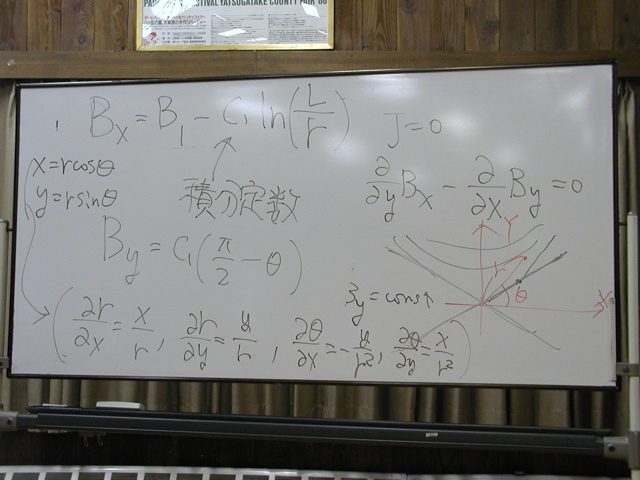 FESTIVAL YATSUGATAKE COUNTY FAIR '88
Bx = B1 - C1 ln(L/r)
J = 0
x = rcosθ
y = rsinθ
積分定数
∂/∂y Bx - ∂/∂x By = 0
By = C1(π/2 - θ)
Y
r
θ
X
By = const
(∂r/∂x = x/r, ∂r/∂y = y/r, ∂θ/∂x = -y/r², ∂θ/∂y = x/r²)